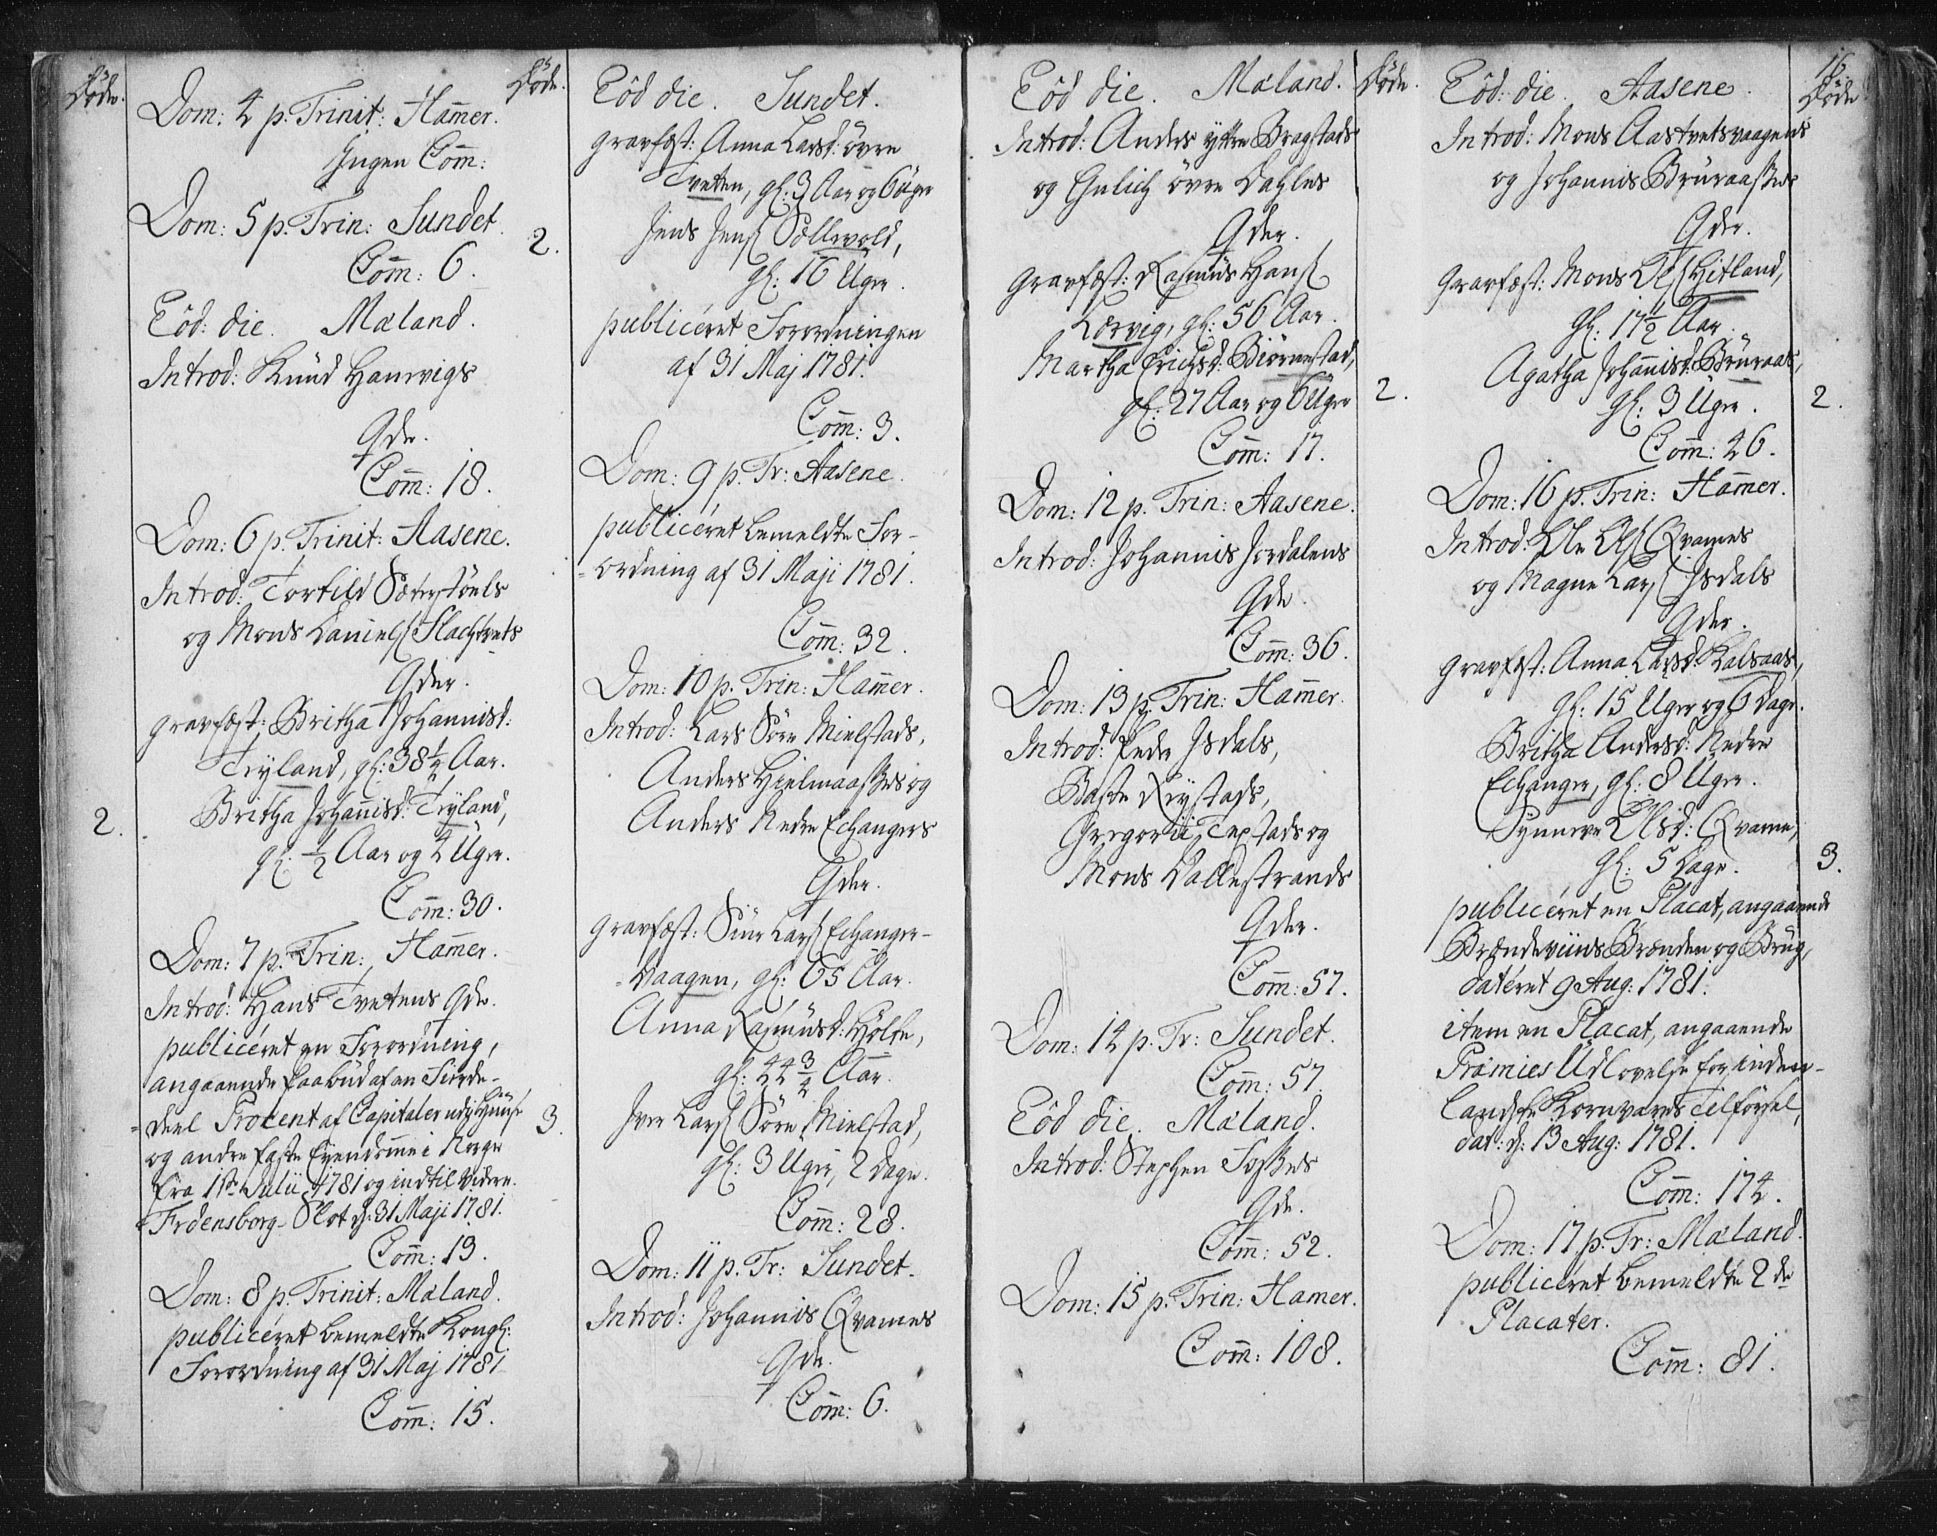 Døde.
Dom: 4 p. Trinit: Ham̄er.
Ingen Com̄:
Dom: 5 p. Trin: Sundet.
Com̄: 6.
Eôd: die. Mæland.
Introd: Knud Hanvigs
Qde.
Com̄: 18.
Dom: 6 p. Trinit: Aasene.
Introd: Torkild
og Mons Daniels
Qder.
gravfæst: Britha Johannisd:
Tryland, gl: 38½ Aar.
Britha Johan̄isd: Tryland,
2.
gl: ½ Aar og 4 Uger.
Com̄: 30.
Dom: 7 p. Trin: Ham̄er.
Introd: Hans Tvetens Qde.
publiceret en Forordning,
angaaende Paabud af en Fierde-
-deel Procent af Capitaler udi Huuse
og andre faste Eyendom̄e i Norge
fra 1ste Julii 1781 og indtil videre.
Frdensborg Slot d: 31 Maji 1781.
Com̄: 13.
Dom: 8 p. Trinit: Mæland.
publiceret bemeldte Kongl:
Forordning af 31 Maj 1781
Com̄: 15.
Døde.
Eôd die. Sundet.
gravfæst: Anna Larsd: øvre
Tveten, gl: 3 Aar og 6 Uger
Jens Jens Søllevold,
2.
gl: 16 Uger.
publiceret Forordningen
af 31 Maj 1781.
Com̄: 3.
Dom: 9 p. Tr: Aasene.
publiceret bemeldte For-
-ordning af 31 Maji 1781.
Com̄: 32.
Dom: 10 p. Trin: Ham̄er.
Introd: Lars Søre Mielstads,
Anders Hielmaaskes og
Anders Nedre Echangers
Qder.
gravfæst: Siur Lars Echanger-
-vaagen, gl: 65 Aar.
Anna Rasmusd: Holse,
gl: 44¾ Aar.
Iver Lars Søre Mielstad,
3.
gl: 3 Uger, 2 Dage.
Com̄: 28.
Dom: 11 p. Tr: Sundet.
Introd: Johannis Qvames
Qde.
Com̄: 6.
Eôd die. Mæland.
Introd: Anders yttre Bragstads
og Ehrlich øvre Dahles
Qder.
gravfæst: Rasmus Hans
Lervig, gl: 56 Aar.
Martha Erichsd: Biørnestad,
gl: 27 Aar og 6 Uger
2.
Com̄: 17.
Dom: 12 p. Trin: Aasene.
Introd: Johannis Jordalens
Qde.
Com̄: 36.
Dom: 13 p. Trin: Ham̄er.
Introd: Peder Isdals,
Baste Rystads,
Gregorii Tepstads og
Mons Vallestrands
Qder.
Com̄: 57.
Dom: 14 p. Tr: Sundet.
Com̄: 57.
Eôd die. Mæland.
Introd: Stephen Foskes
Qde.
Com̄: 52.
Dom: 15 p. Trin: Hamer.
Com̄: 108.
Døde.
Eôd: die. Aasene.
Introd: Mons Aastvetsvaagens
og Johannis Bruraaskes
Qder.
gravfæst: Mons Ols Hitland,
gl: 17½ Aar.
Agatha Johan̄isd: Bruraas,
gl: 3 Uger.
2.
Com̄: 46.
Dom: 16 p. Trin: Ham̄er.
Introd: Ole Ols Qvames
og Magne Lars Isdals
Qder.
gravfæst: Anna Larsd: Kalsaas,
gl: 15 Uger og 6 Dage.
Britha Andersd: Nedre
Echanger, gl: 8 Uger.
Synneve Olsd: Qvame,
gl: 5 Dage.
3.
publiceret en Placat, angaaende
Brændeviins Brænden og Brug,
dateret 9 Aug: 1781.
item en Placat, angaaende
Præmies Udlovelse for inden-
landske Kornvares Tilførsel,
dat: d: 13 Aug: 1781.
Com̄: 174.
Dom: 17 p. Tr: Mæland.
publiceret bemeldte 2de
Placater.
Com̄: 81.
16
Døde